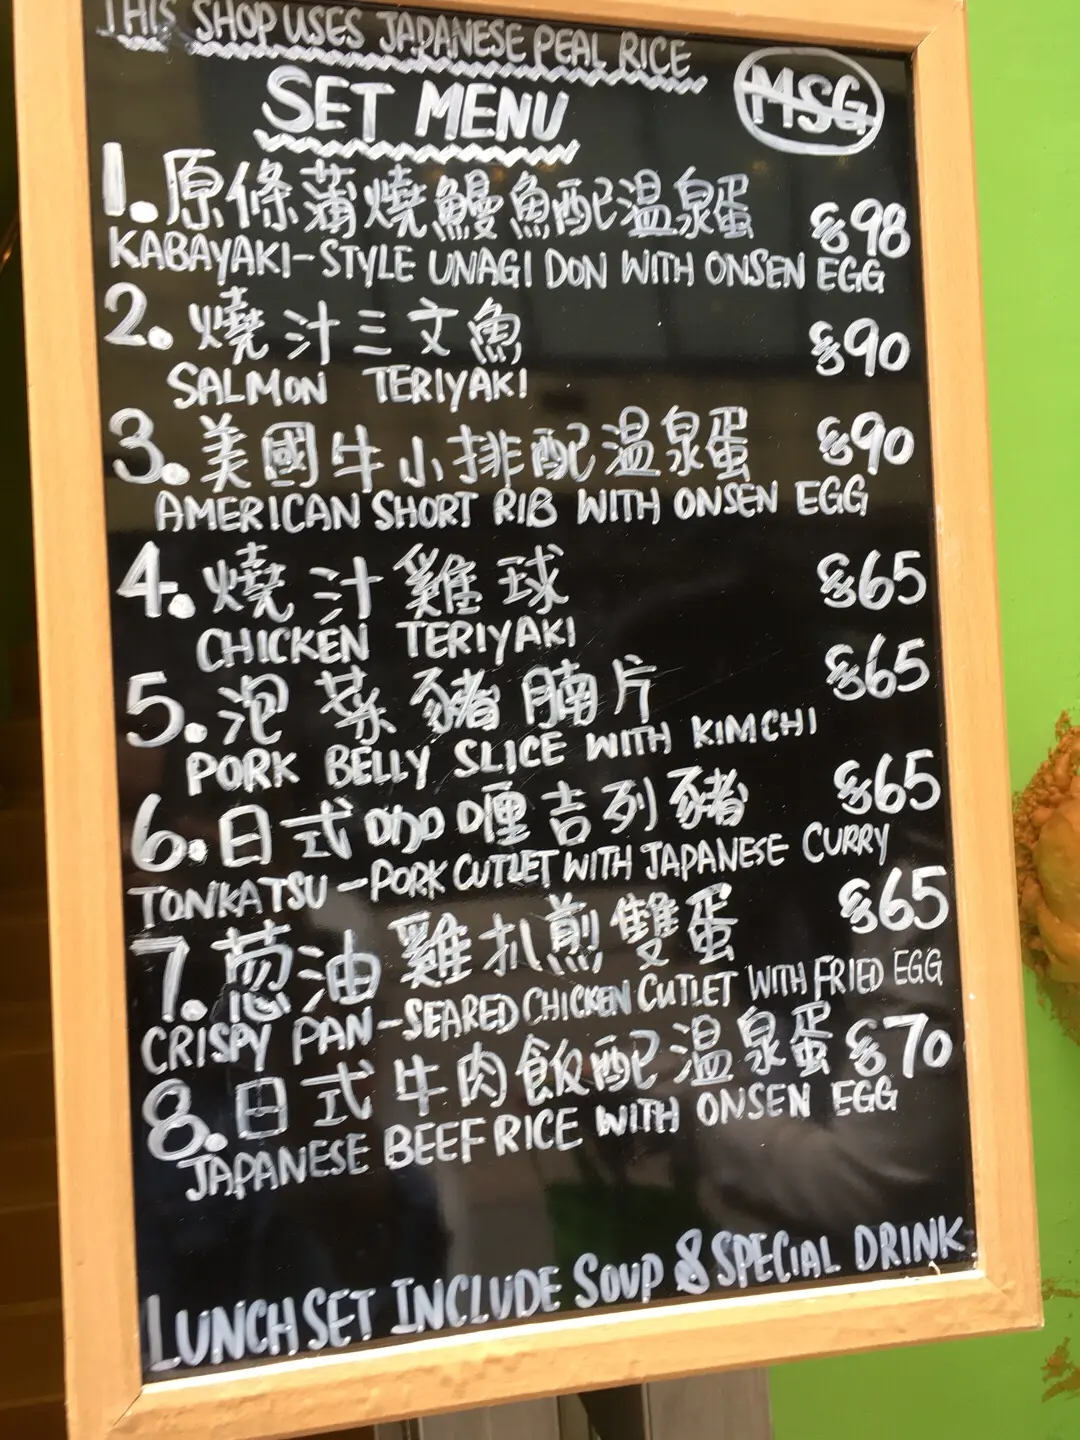 THIS SHOP USES JAPANESE PEAL RICE
SET MENU
MSG
1. 原條蒲燒鰻魚配溫泉蛋 $98
KABAYAKI-STYLE UNAGI DON WITH ONSEN EGG
2. 燒汁三文魚 $90
SALMON TERIYAKI
3. 美國牛小排配溫泉蛋 $90
AMERICAN SHORT RIB WITH ONSEN EGG
4. 燒汁雞球 $65
CHICKEN TERIYAKI
5. 泡菜豬腩片 $65
PORK BELLY SLICE WITH KIMCHI
6. 日式咖喱吉列豬 $65
TONKATSU - PORK CUTLET WITH JAPANESE CURRY
7. 葱油雞扒煎雙蛋 $65
CRISPY PAN-SEARED CHICKEN CUTLET WITH FRIED EGG
8. 日式牛肉飯配溫泉蛋 $70
JAPANESE BEEF RICE WITH ONSEN EGG
LUNCH SET INCLUDE SOUP & SPECIAL DRINK